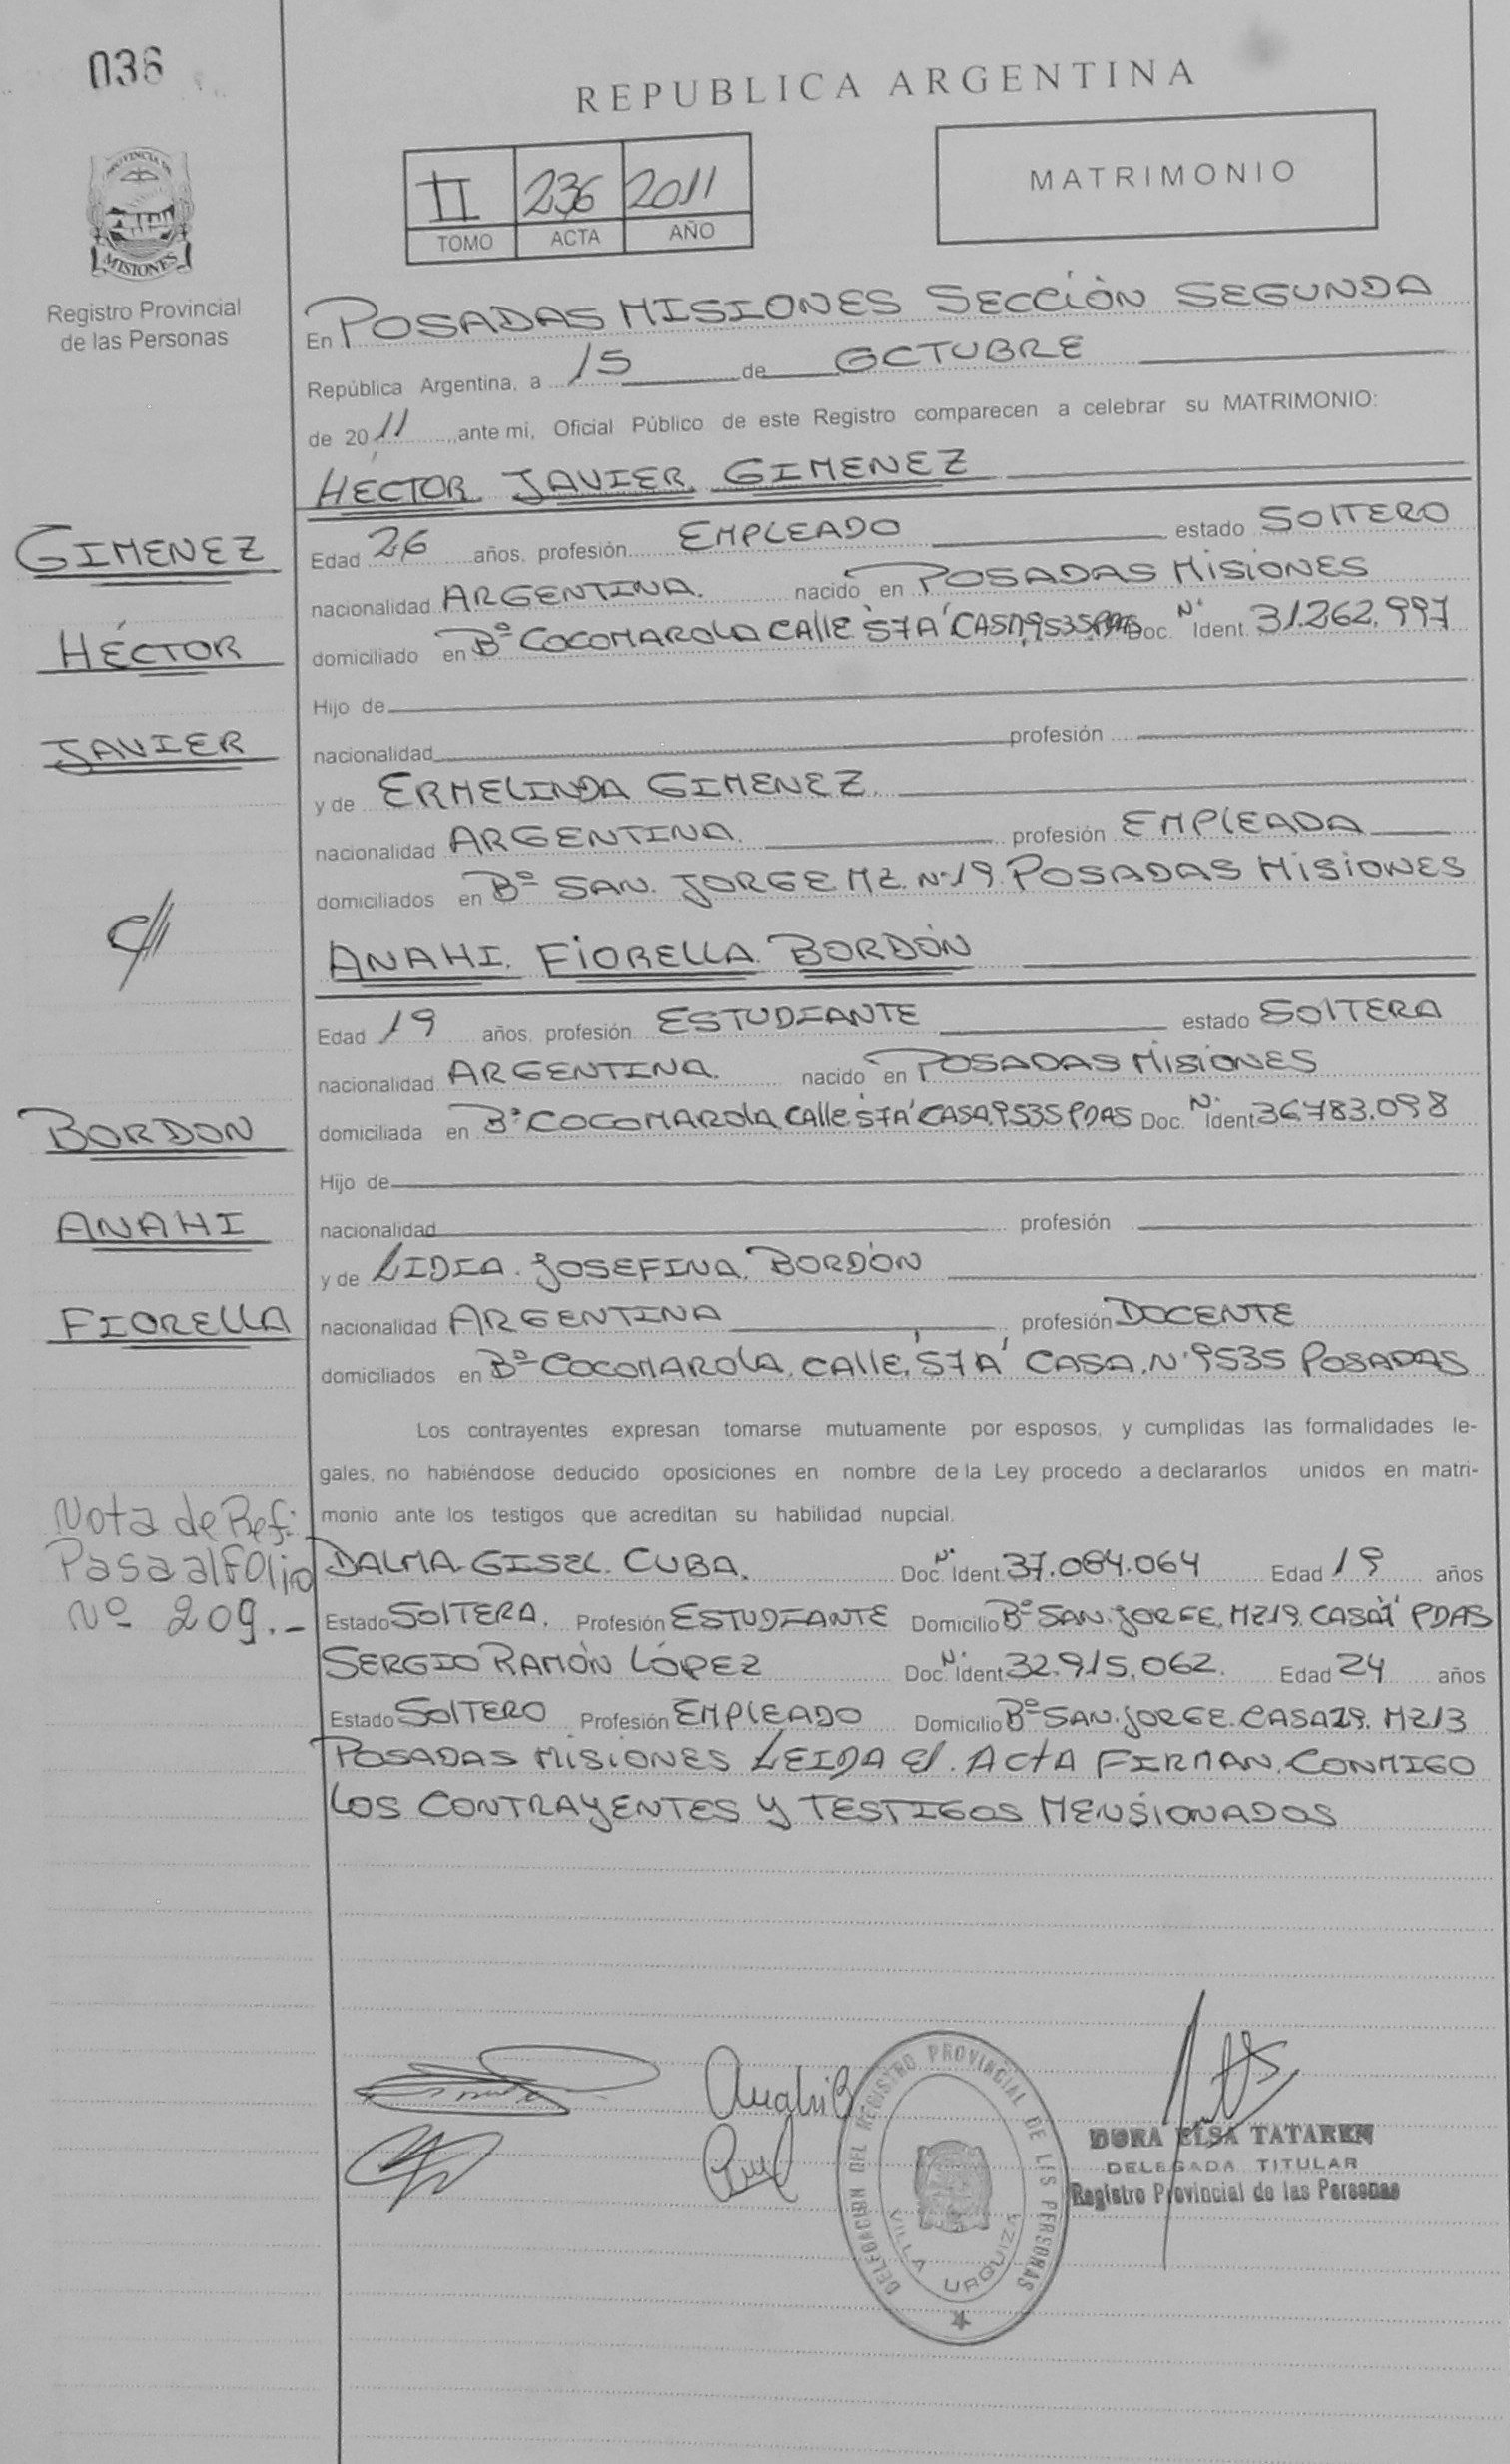 036
REPUBLICA ARGENTINA
II 236 2011
TOMO ACTA AÑO
MATRIMONIO
PROVINCIA DE
MISIONES
Registro Provincial
de las Personas
En POSADAS MISIONES SECCIÒN SEGUNDA
República Argentina, a 15 de OCTUBRE
de 2011 ,ante mí, Oficial Público de este Registro comparecen a celebrar su MATRIMONIO:
HÉCTOR JAVIER GIMENEZ
GIMENEZ
HÉCTOR
JAVIER
Edad 26 años, profesión EMPLEADO estado SOlTERO
nacionalidad ARGENTINA. nacido en POSADAS MISIONES
domiciliado en Bº COCOMAROLA CALLE 'S7A' CASA 9535 PDAS Doc. Nº Ident. 31.262.997
Hijo de
nacionalidad profesión
y de ERMELINDA GIMENEZ.
nacionalidad ARGENTINA. profesión EMPlEADA
domiciliados en Bº SAN. JORGE MZ. Nº19. POSADAS MISIONES
ANAHI. FIORELLA BORDÓN
Edad 19 años, profesión ESTUDIANTE estado SOlTERA
nacionalidad ARGENTINA. nacido en POSADAS MISIONES
domiciliada en Bº COCOMAROlA, CAllE 'S7A' CASA 9535 PDAS Doc. Nº Ident 36783.098
BORDON
ANAHI
FIORELLA
Hijo de
nacionalidad profesión
y de LIDIA. JOSEFINA. BORDÓN
nacionalidad ARGENTINA profesión DOCENTE
domiciliados en Bº COCOMAROlA, CAllE, 'S7A' CASA. Nº 9535 POSADAS
Los contrayentes expresan tomarse mutuamente por esposos, y cumplidas las formalidades le-
gales, no habiéndose deducido oposiciones en nombre de la Ley procedo a declararlos unidos en matri-
monio ante los testigos que acreditan su habilidad nupcial.
Nota de Ref:
Pasa al Folio
Nº 209.-
DALMA GISEL. CUBA. Doc. Nº Ident. 37.084.064 Edad 19 años
Estado SOlTERA. Profesión ESTUDIANTE Domicilio Bº SAN. JORGE, MZ19. CASA PDAS
SERGIO RAMÓN LÓPEZ Doc. Nº Ident. 32.915.062. Edad 24 años
Estado SOlTERO Profesión EMPLEADO Domicilio Bº SAN. JORGE. CASA 29. MZ13
POSADAS MISIONES LEIDA El. ACtA FIRMAN. CONMIGO
LOS CONTRAYENTES Y TESTIGOS MENSIONADOS
Anahi B
DELEGACION DEL REGISTRO PROVINCIAL DE LAS PERSONAS
VILLA URQUIZA
DORA ELSA TATAREN
DELEGADA TITULAR
Registro Provincial de las Personas